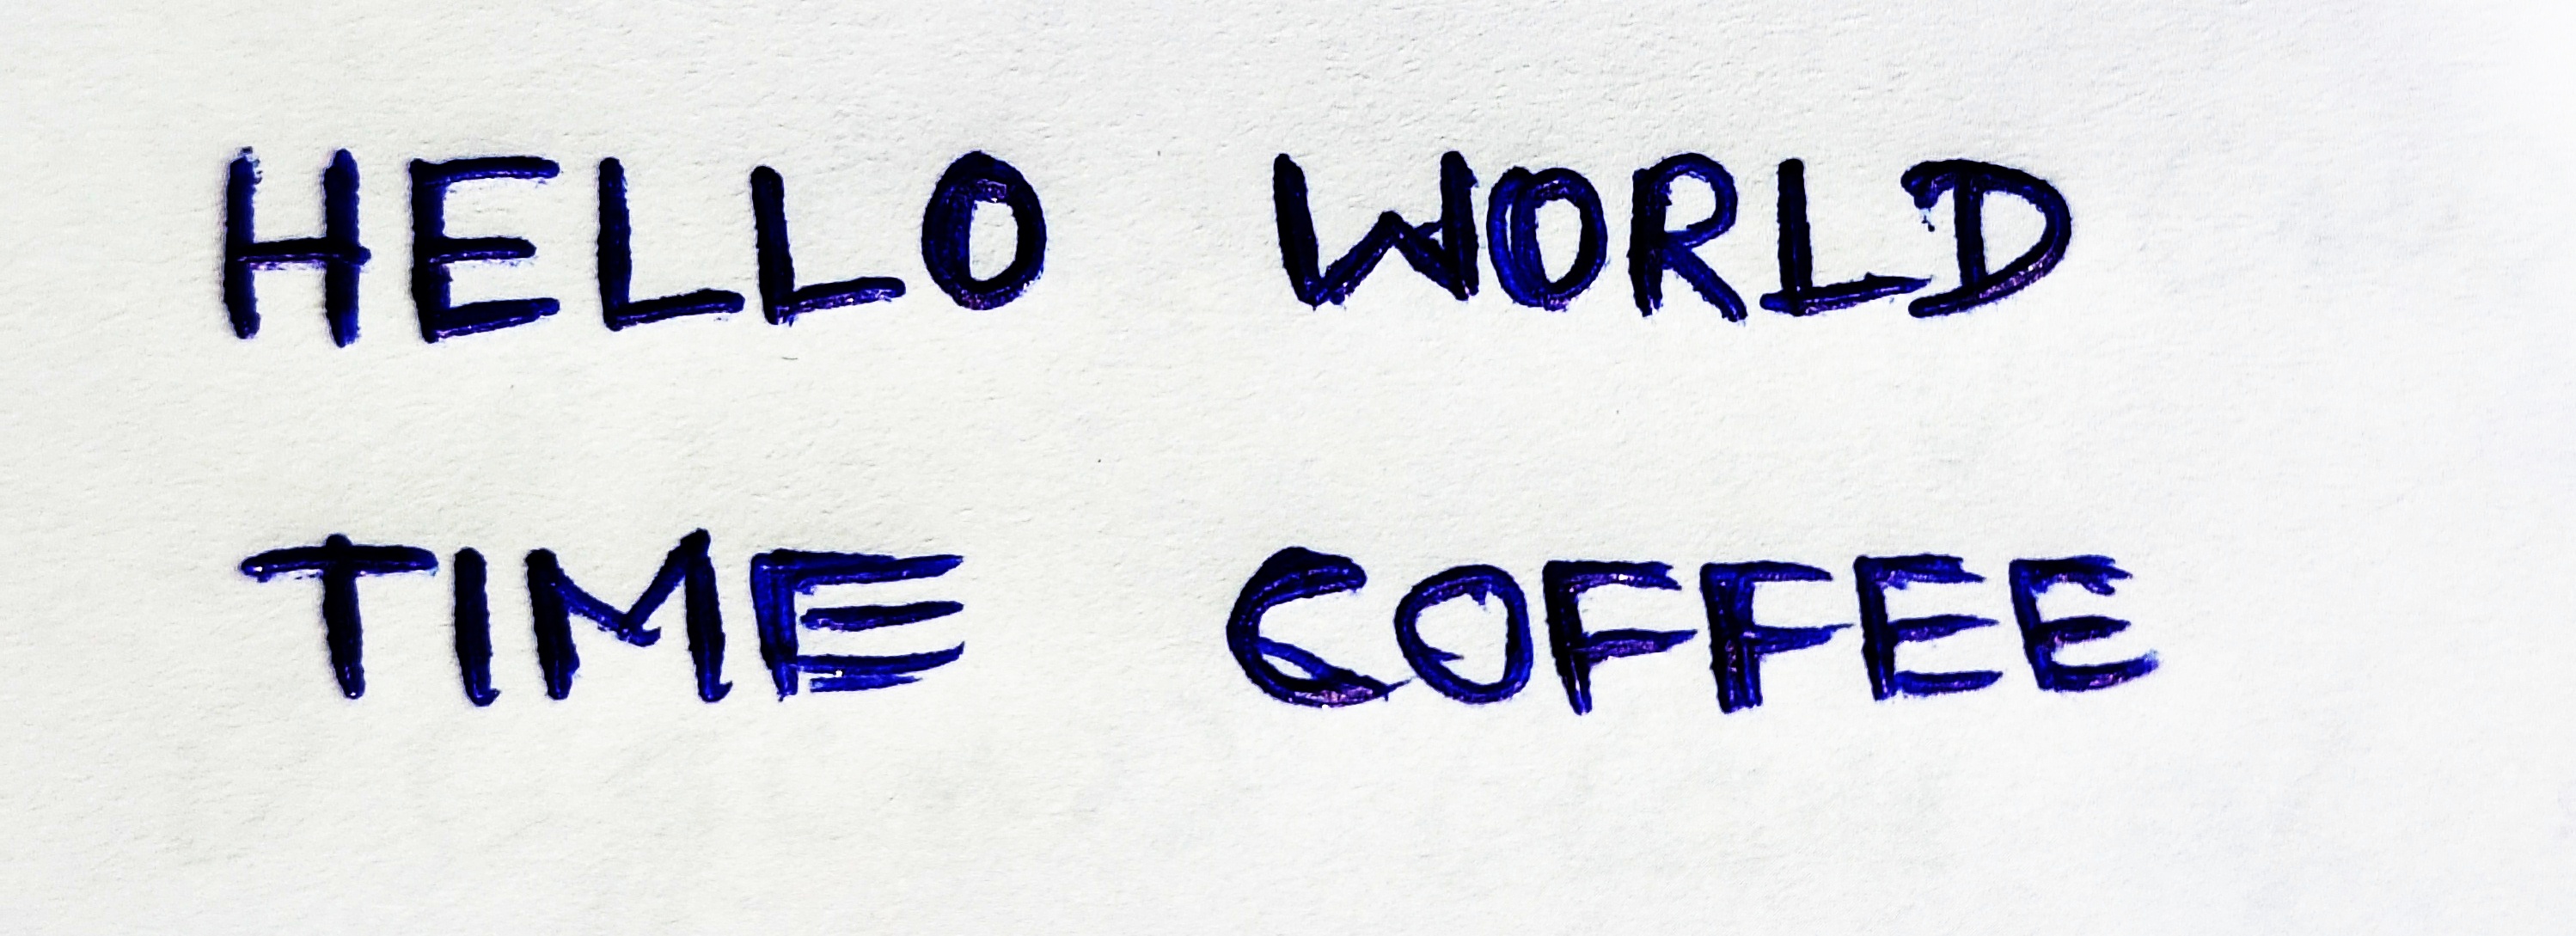 HELLO WORLD
TIME COFFEE